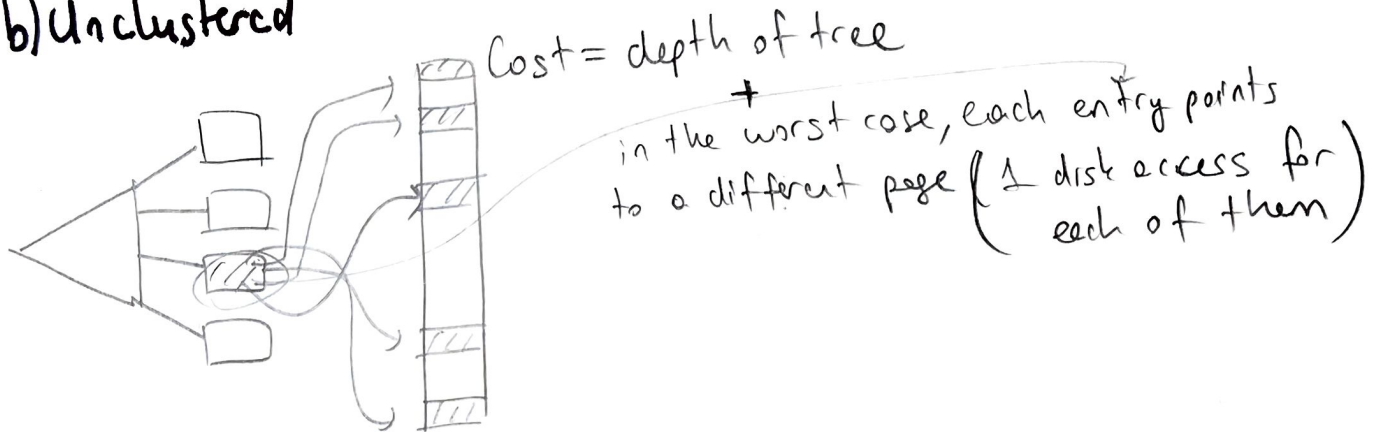 b) Unclustered
Cost = depth of tree
+
in the worst case, each entry points
to a different page (1 disk access for
each of them)